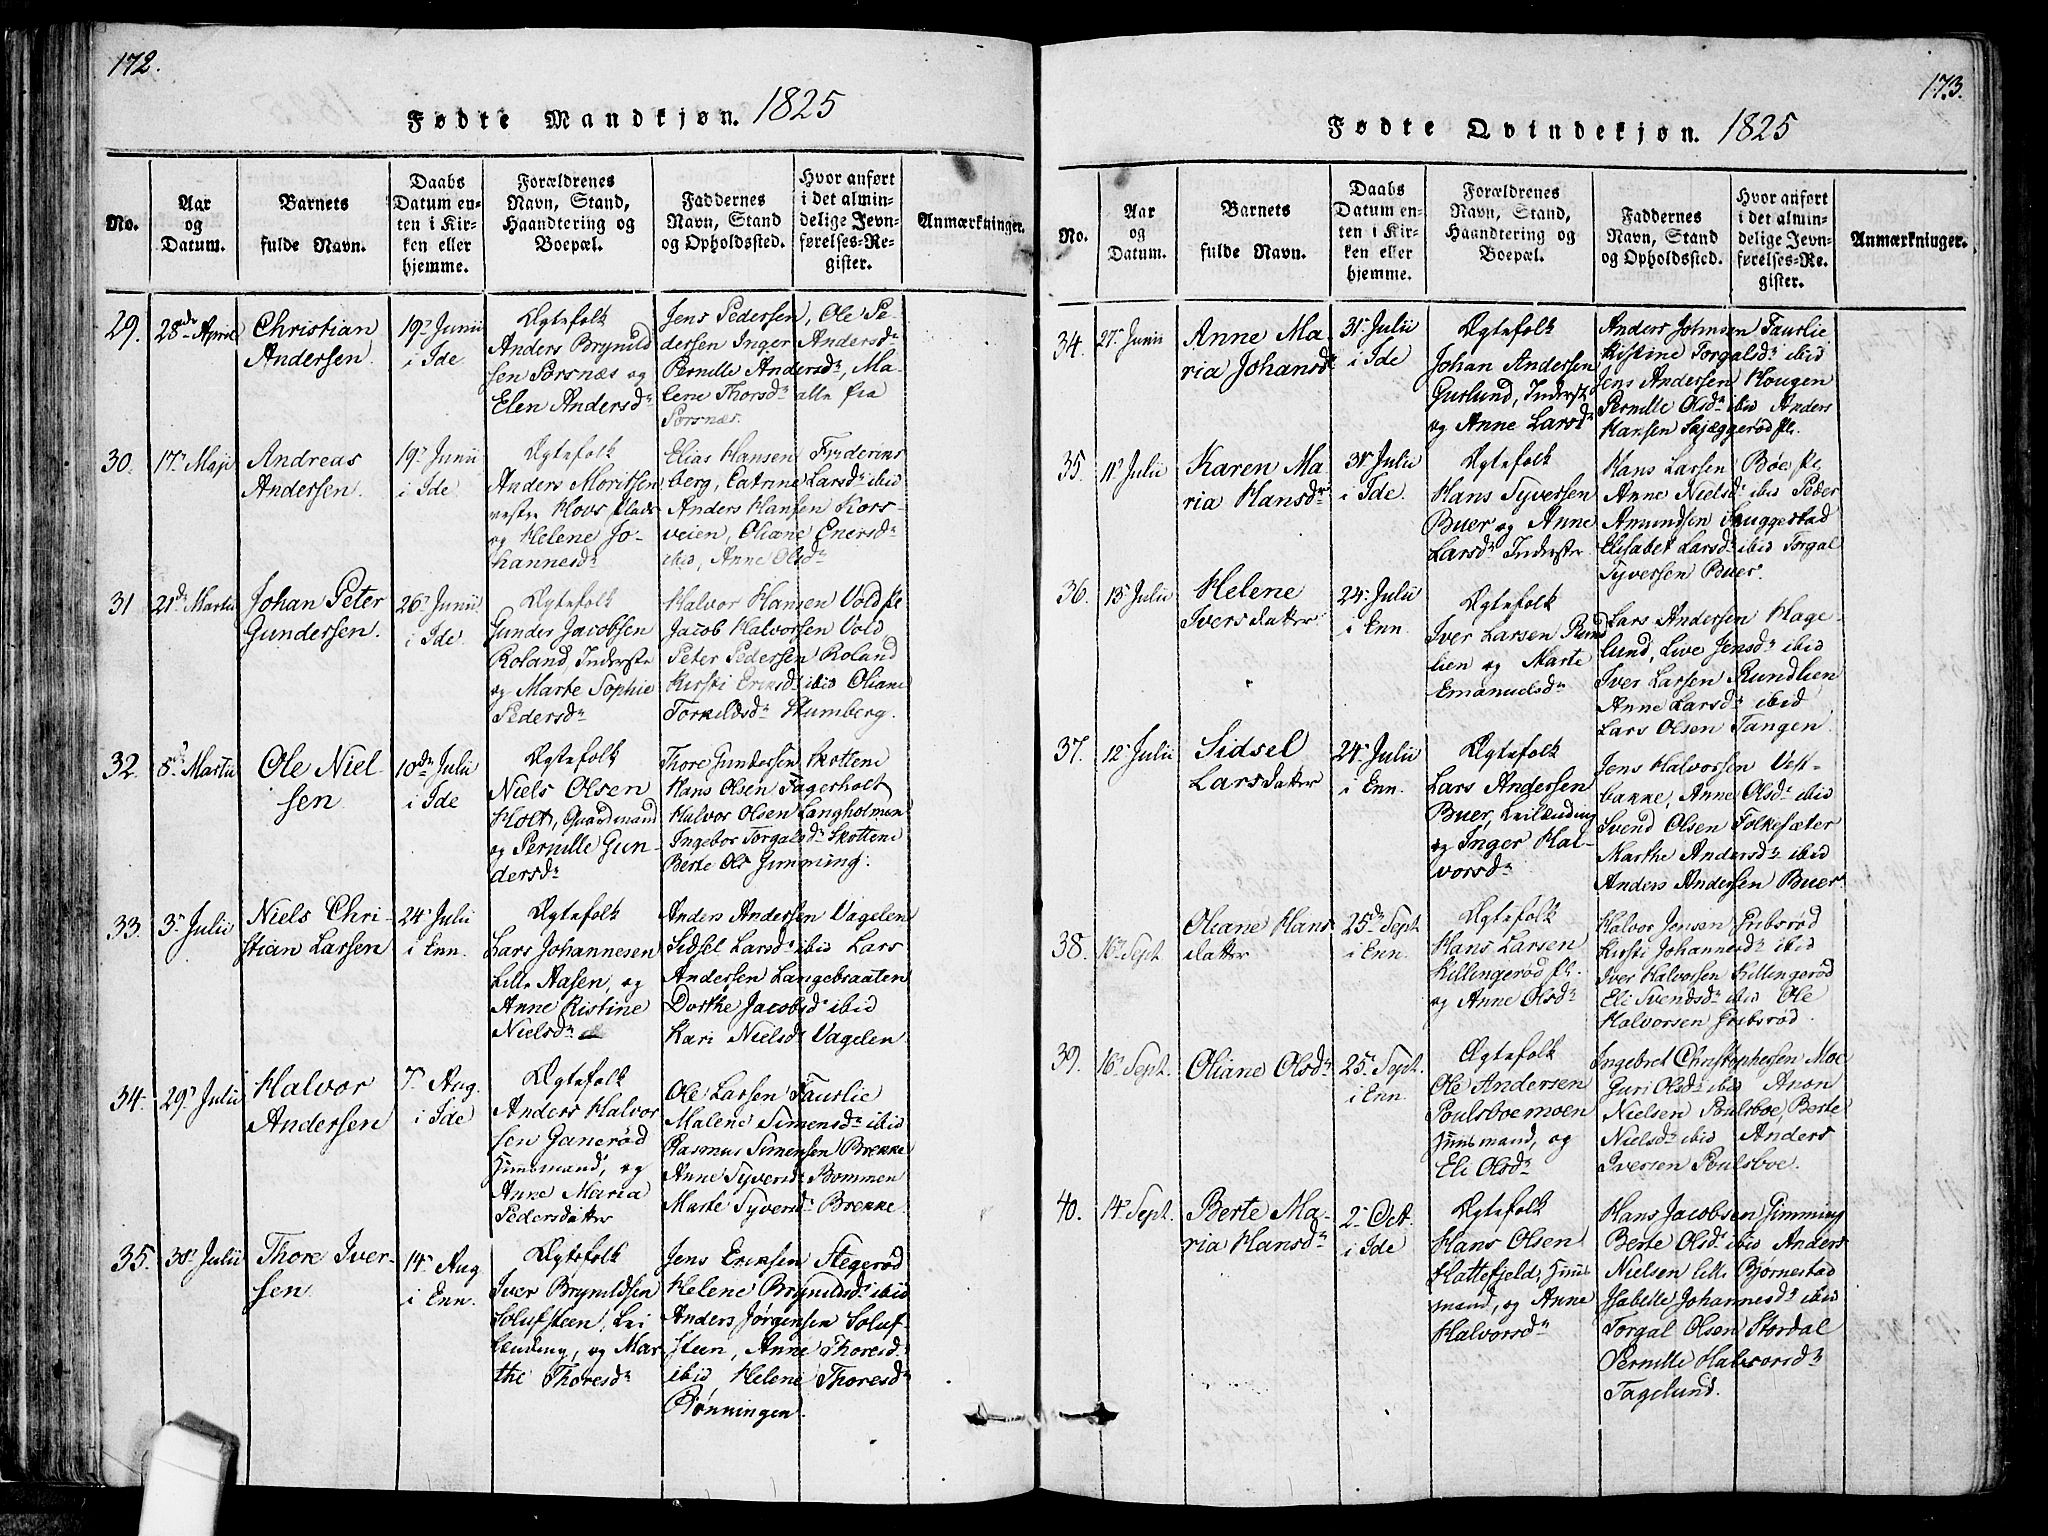 172.
Fødte Mandkjøn. 1825
No.
Aar
og
Datum.
Barnets
fulde Navn.
Daabs
Datum en-
ten i Kir-
ken eller
hjemme.
Forældrenes
Navn, Stand,
Haandtering og
Boepæl.
Faddernes
Navn, Stand
og Opholdssted.
Hvor anført
i det almin-
delige Jevn-
førelses-Re-
gister.
Anmærkninger.
29.
28de April
Christian
Andersen.
19de Junii
i Ide
Ægtefolk
Anders Brynild
sen Sorsnæs og
Elen Andersdr
Jens Pedersen, Ole Pe-
dersen Inger Andersdr
Pernille Andersdr, Ma-
lene Thorsdr alle fra
Sorsnæs.
30.
17de Maji
Andreas
Andersen.
19de Junii
i Ide.
Ægtefolk
Anders Moritsen
vestre Hovs Plads
og Helene Jo-
hannesdr
Elias Hansen
berg, Catrine Larsdr ibid
Anders Hansen Kors-
veien, Oliane Enersdr
ibid, Anne Olsdr
31
21de Martii
Johan Peter
Gundersen.
26de Junii
i Ide.
Ægtefolk
Gunder Jacobsen
Roland, Inderste
og Marte Sophie
Pedersdr
Halvor Hansen Vold pl.
Jacob Halvorsen Vold
Peter Pedersen Roland
Kirsti Eriksdr ibid Oliane
Torkildsdr Skumberg.
32.
8de Martii
Ole Niel-
sen
10de Julii
i Ide
Ægtefolk
Niels Olsen
Holt, Gaardmand
og Pernille Gun-
dersdr
Thore Gundersen Skottene
Hans Olsen Fagerholt
Halvor Olsen Langholmen
Ingebor Torgalsdr Skottene
Berte Ols Gimming.
33.
3de Julii
Niels Chri-
stian Larsen
24de Julii
i Enn.
Ægtefolk
Lars Johannesen
Lille Aasen, og
Anne Kistine
Nielsdr
Anders Andersen Vagelen
Sidsel Larsdr ibid Lars
Andersen Langebraaten
Dorthe Jacobsdr ibid
Kari Nielsdr Vagelen
34.
29de Julii
Halvor
Andersen
7de Aug.
i Ide
Ægtefolk
Anders Halvor
sen Ganerød
Huusmand, og
Anne Maria
Pedersdatter
Ole Larsen Taurlie
Malene Simensdr ibid
Rasmus Simensen Brekke
Anne Syversdr Bommen
Marte Syversdr Brekke.
35.
30de Julii
Thore Iver-
sen.
14de Aug
i Enn.
Ægtefolk
Iver Brynildsen
Solufsteen, Lei
lænding, og Mar
the Thoresdr
Jens Eriksen Stegerød
Helene Brynildsdr ibid
Anders Jørgensen Soluf-
steen, Anne Thoresdr
ibid Helene Thoresdr
Rønningen.
173.
Fødte Qvindekjøn. 1825
No.
Aar
og
Datum.
Barnets
fulde Navn.
Daabs
Datum en-
ten i Kir-
ken eller
hjemme.
Forældrenes
Navn, Stand,
Haandtering og
Boepæl.
Faddernes
Navn, Stand
og Opholdssted.
Hvor anført
i det almin-
delige Jevn-
førelses-Re-
gister.
Anmærkninger.
34.
27de Junii
Anne Ma-
ria Johansdr
31de Julii
i Ide
Ægtefolk
Johan Andersen
Gurlund, Inderste
og Anne Larsdr
Anders Johnsen Taurlie
Kistine Torgalsdr ibid
Jens Andersen Hougen
Pernille Olsdr ibid Anders
Hansen Skjæggerød pl.
35.
11de Julii
Karen Ma-
ria Hansdr
31de Julii
i Ide.
Ægtefolk
Hans Syversen
Buer og Anne
Larsdr Inderste
Hans Larsen Bøe pl.
Anne Nielsdr ibid Peder
Amundsen Skuggestad
Elisabet Larsdr ibid Torgal
Syversen Buer.
36.
13de Julii
Helene
Iversdatter
24de Julii
i Enn.
Ægtefolk
Iver Larsen Rund
lien og Marte
Emanuelsdr
Lars Andersen Hage-
lund, Live Jensdr ibid
Iver Larsen Rundlien
Anne Larsdr ibid
Lars Olsen Tangen
37.
12de Julii
Sidsel
Larsdatter
24de Julii
i Enn.
Ægtefolk
Lars Andersen
Buer, Leilænding
og Inger Hal-
vorsdr
Jens Halvorsen Vest-
bakke, Anne Olsdr ibid
Svend Olsen Folkesæter
Marthe Andersdr ibid
Anders Andersen Buer
38.
16de Sept.
Oliane Hans
datter
25de Sept.
i Enn.
Ægtefolk
Hans Larsen
Killingerød pl.
og Anne Olsdr
Halvor Jensen Gribsrød
Kirsti Johannesdr ibid
Iver Halvorsen Killingerød
Eli Svendsdr ibid Ole
Halvorsen Gribsrød.
39.
16de Sept.
Oliane Olsdr
25de Sept.
i Enn.
Ægtefolk
Ole Andersen
Poulsboemoen
Huusmand, og
Eli Olsdr
Ingebret Christophersen Moe
Guri Olsdr ibid Anon
Nielsen Poulsboe Berte
Nielsdr ibid Anders
Iversen Poulsboe.
40.
14de Sept.
Berte Ma-
ria Hansdr
2de Oct.
i Ide
Ægtefolk
Hans Olsen
Hattefjeld, Huus
mand, og Anne
Halvorsdr
Hans Jacobsen Gimming
Berte Olsdr ibid Anders
Nielsen lille Bjørnestad
Isabelle Johannesdr ibid
Torgal Olsen Stordal
Pernille Halvorsdr
Tagelund.